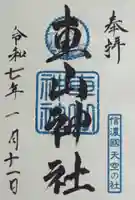 奉拝
車山神社
信濃國 天空の社
令和七年 一月十一日